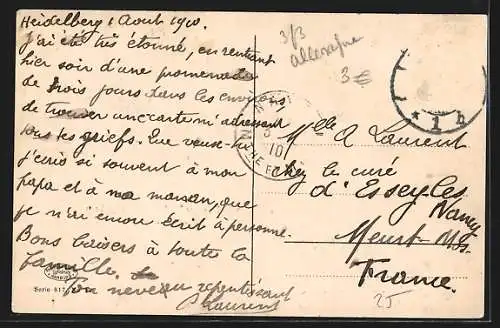 Heidelberg 1 Aout 1910.
J'ai été très étonné, en rentrant
hier soir d'une promenade
de trois jours dans les environs
de trouver une carte m'adressant
tous tes griefs. Que veux-tu
j'écris si souvent à mon
papa et à ma maman, que
je n'ai encore écrit à personne.
Bons baisers à toute la
famille.
Ton neveu repentissant
Laurent
Serie 817
3/3
allemagne
3€
* 1 b
10
Mlle A Laurent
Chez le curé
d'Essey les
Nancy
Meurt-Mos.
France.
25